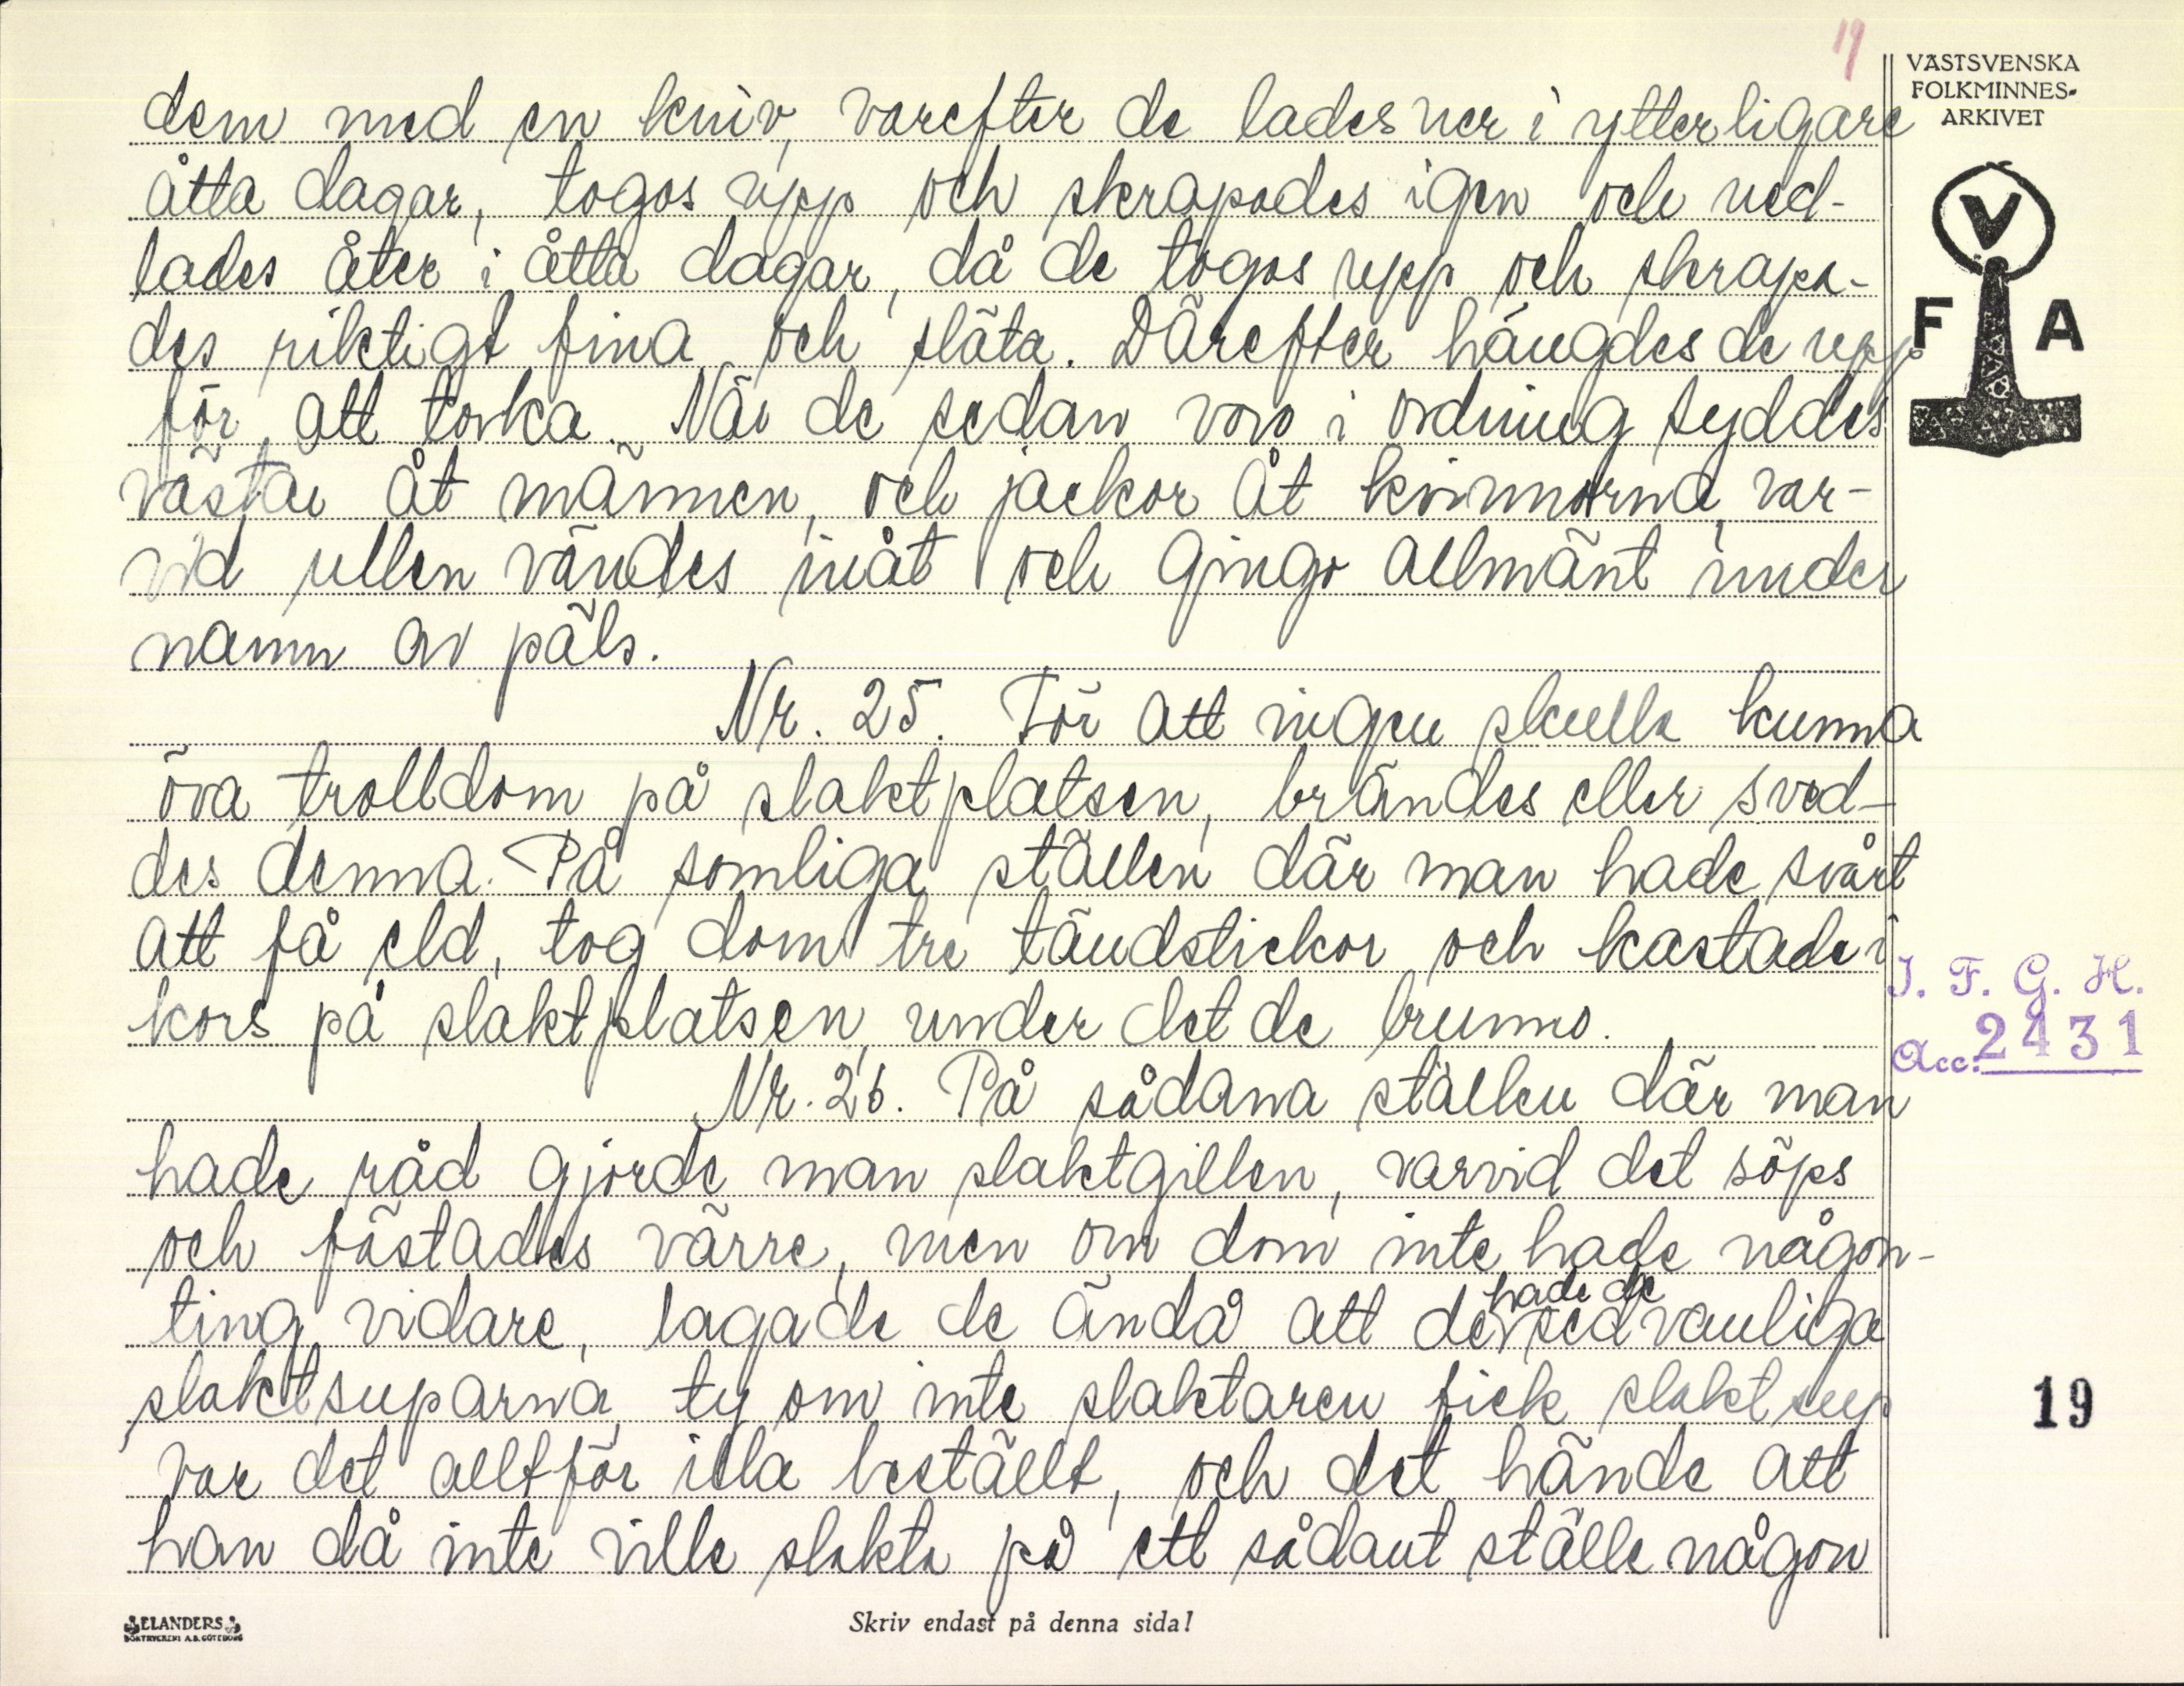 19
VÄSTSVENSKA
FOLKMINNES-
ARKIVET
V
F A
dem med en kniv, varefter de lades ner i ytterligare
åtta dagar, togos upp och skrapades igen och ned-
lades åter i åtta dagar, då de togos upp och skrapa-
des riktigt fina och släta. Därefter hängdes de upp
för att torka. När de sedan voro i ordning syddes
västar åt männen, och jackor åt kvinnorna, var-
vid ullen vändes inåt och gingo allmänt under
namn av päls.
Nr. 25. För att ingen skulle kunna
öva trolldom på slaktplatsen, brändes eller sved-
des denna. På somliga ställen där man hade svårt
att få eld, tog dom tre tändstickor och kastade i
kors på slaktplatsen, under det de brunno.
Nr. 26. På sådana ställen där man
hade råd gjorde man slaktgillen, varvid det söps
och fästades värre, men om dom inte hade någon-
hade de
ting vidare, lagade de ändå att de sedvanliga
slaktsuparna, ty om inte slaktaren fick slaktsup
var det alltför illa beställt, och det hände att
han då inte ville slakta på ett sådant ställe någon
I. F. G. H.
Acc. 2431
19
ELANDERS
BOKTRYCKERI A.B. GÖTEBORG
Skriv endast på denna sida!